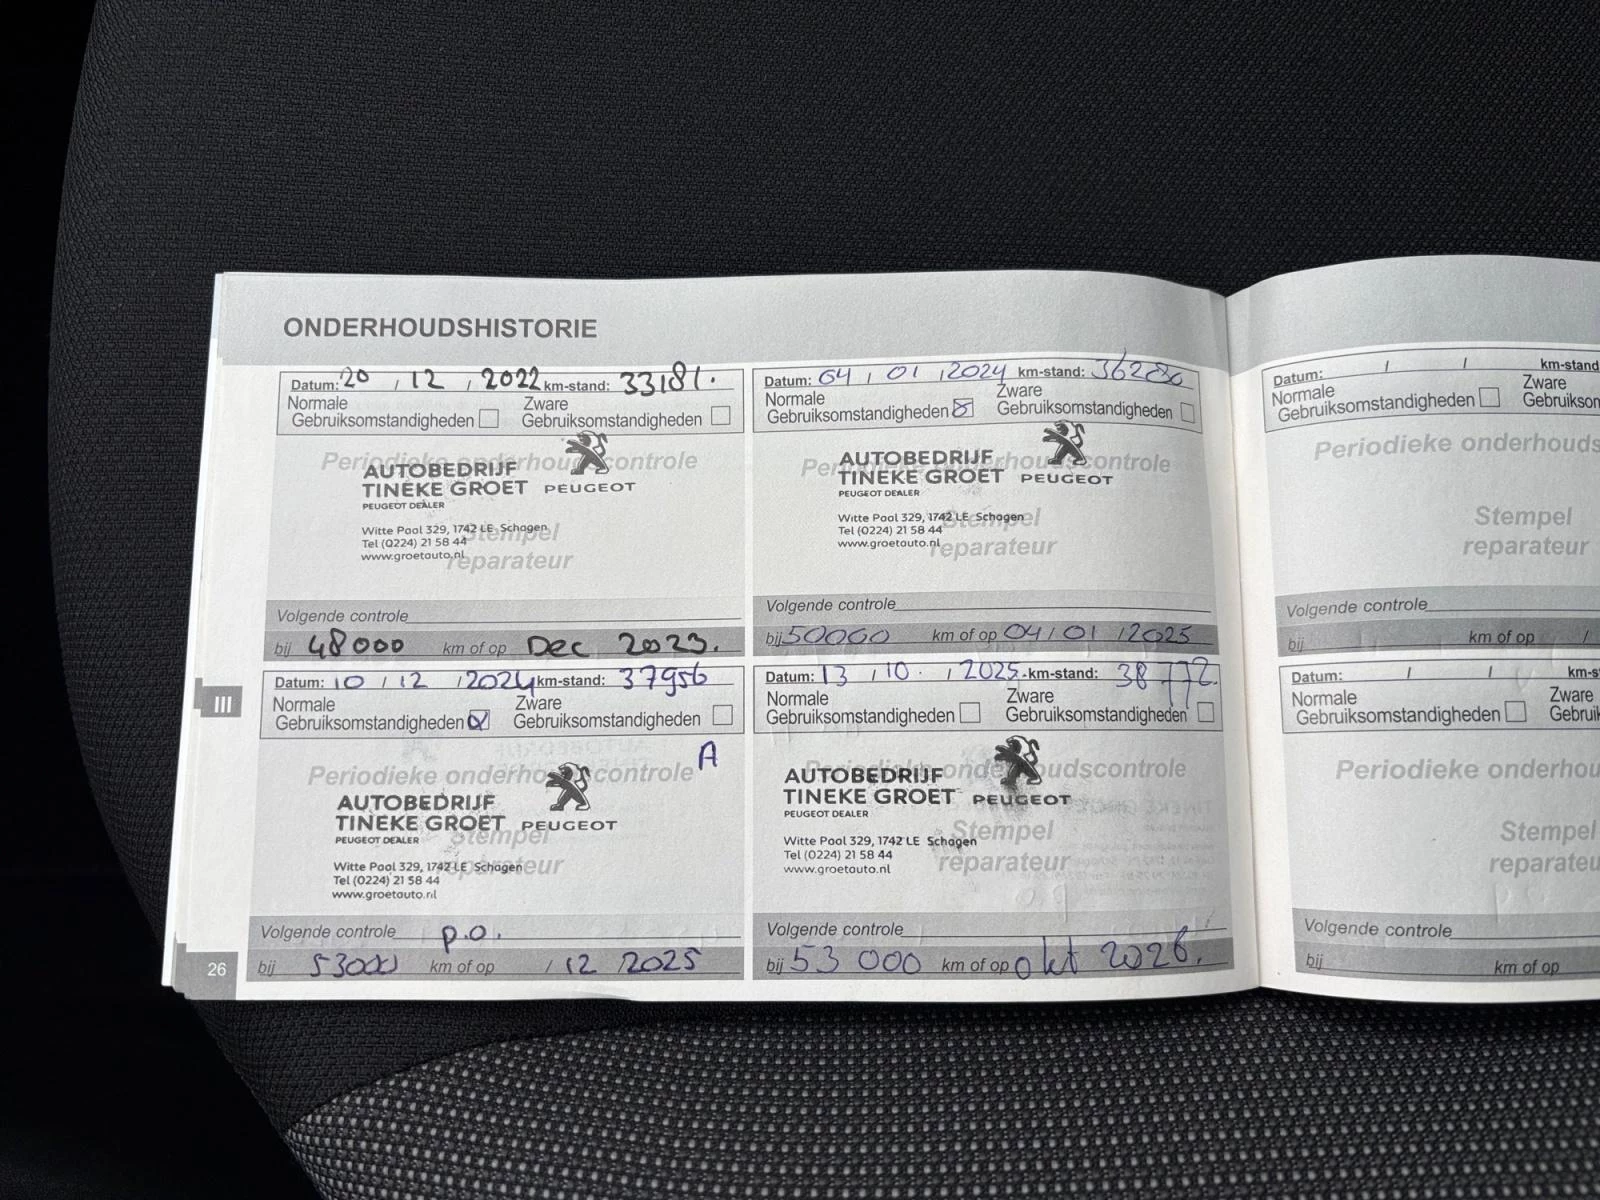 ONDERHOUDSHISTORIE
Datum: 20 / 12 / 2022 km-stand: 33181.
Normale Gebruiksomstandigheden
Zware Gebruiksomstandigheden
Periodieke onderhoudscontrole
AUTOBEDRIJF
TINEKE GROET PEUGEOT
PEUGEOT DEALER
Witte Paal 329, 1742 LE Schagen
Tel (0224) 21 58 44
www.groetauto.nl
Stempel
reparateur
Volgende controle
bij 48000 km of op Dec 2023.
Datum: 04 / 01 / 2024 km-stand: 36280
Normale Gebruiksomstandigheden
Zware Gebruiksomstandigheden
Periodieke onderhoudscontrole
AUTOBEDRIJF
TINEKE GROET PEUGEOT
PEUGEOT DEALER
Witte Paal 329, 1742 LE Schagen
Tel (0224) 21 58 44
www.groetauto.nl
Stempel
reparateur
Volgende controle
bij 50000 km of op 04 / 01 / 2025
III
Datum: 10 / 12 / 2024 km-stand: 37956
Normale Gebruiksomstandigheden
Zware Gebruiksomstandigheden
A
Periodieke onderhoudscontrole
AUTOBEDRIJF
TINEKE GROET PEUGEOT
PEUGEOT DEALER
Witte Paal 329, 1742 LE Schagen
Tel (0224) 21 58 44
www.groetauto.nl
Stempel
reparateur
Volgende controle p.o.
bij 53000 km of op / 12 / 2025
26
Datum: 13 / 10 / 2025 km-stand: 38772.
Normale Gebruiksomstandigheden
Zware Gebruiksomstandigheden
Periodieke onderhoudscontrole
AUTOBEDRIJF
TINEKE GROET PEUGEOT
PEUGEOT DEALER
Witte Paal 329, 1742 LE Schagen
Tel (0224) 21 58 44
www.groetauto.nl
Stempel
reparateur
Volgende controle
bij 53 000 km of op okt 2026.
Datum: / / km-stand
Normale Gebruiksomstandigheden
Zware
Periodieke onderhouds
Stempel
reparateur
Volgende controle
bij km of op /
Datum: / / km-s
Normale Gebruiksomstandigheden
Zware
Periodieke onderhou
Stempel
reparateu
Volgende controle
bij km of op